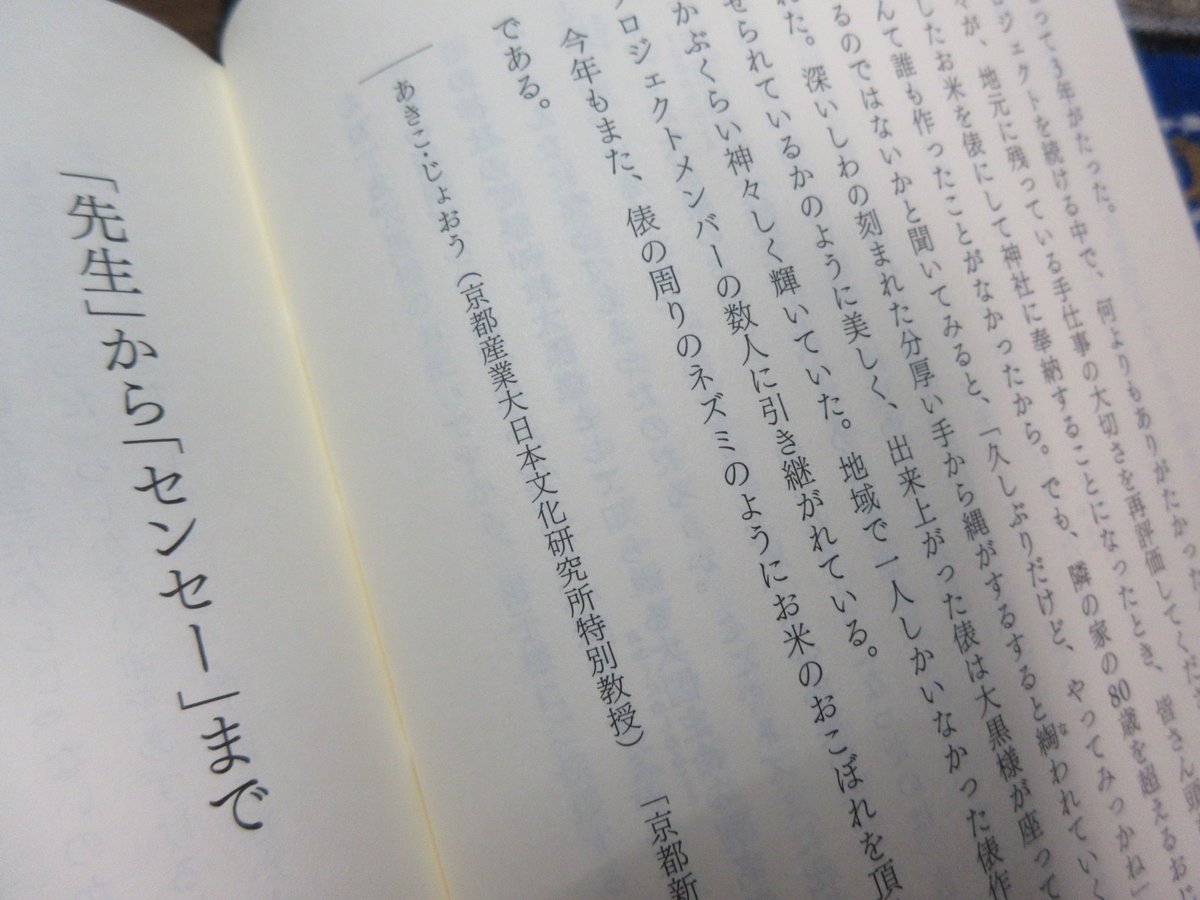 って3年がたった。
ロジェクトを続ける中で、何よりもありがたかった
が、地元に残っている手仕事の大切さを再評価してくだ
したお米を俵にして神社に奉納することになったとき、皆さん頭
んて誰も作ったことがなかったから。でも、隣の家の80歳を超えるおじ
るのではないかと聞いてみると、「久しぶりだけど、やってみっかね」
れた。深いしわの刻まれた分厚い手から縄がするすると綯われていく
せられているかのように美しく、出来上がった俵は大黒様が座って
かぶくらい神々しく輝いていた。地域で一人しかいなかった俵作
プロジェクトメンバーの数人に引き継がれている。
今年もまた、俵の周りのネズミのようにお米のおこぼれを頂
である。
あきこ・じょおう（京都産業大日本文化研究所特別教授）　「京都新
「先生」から「センセー」まで